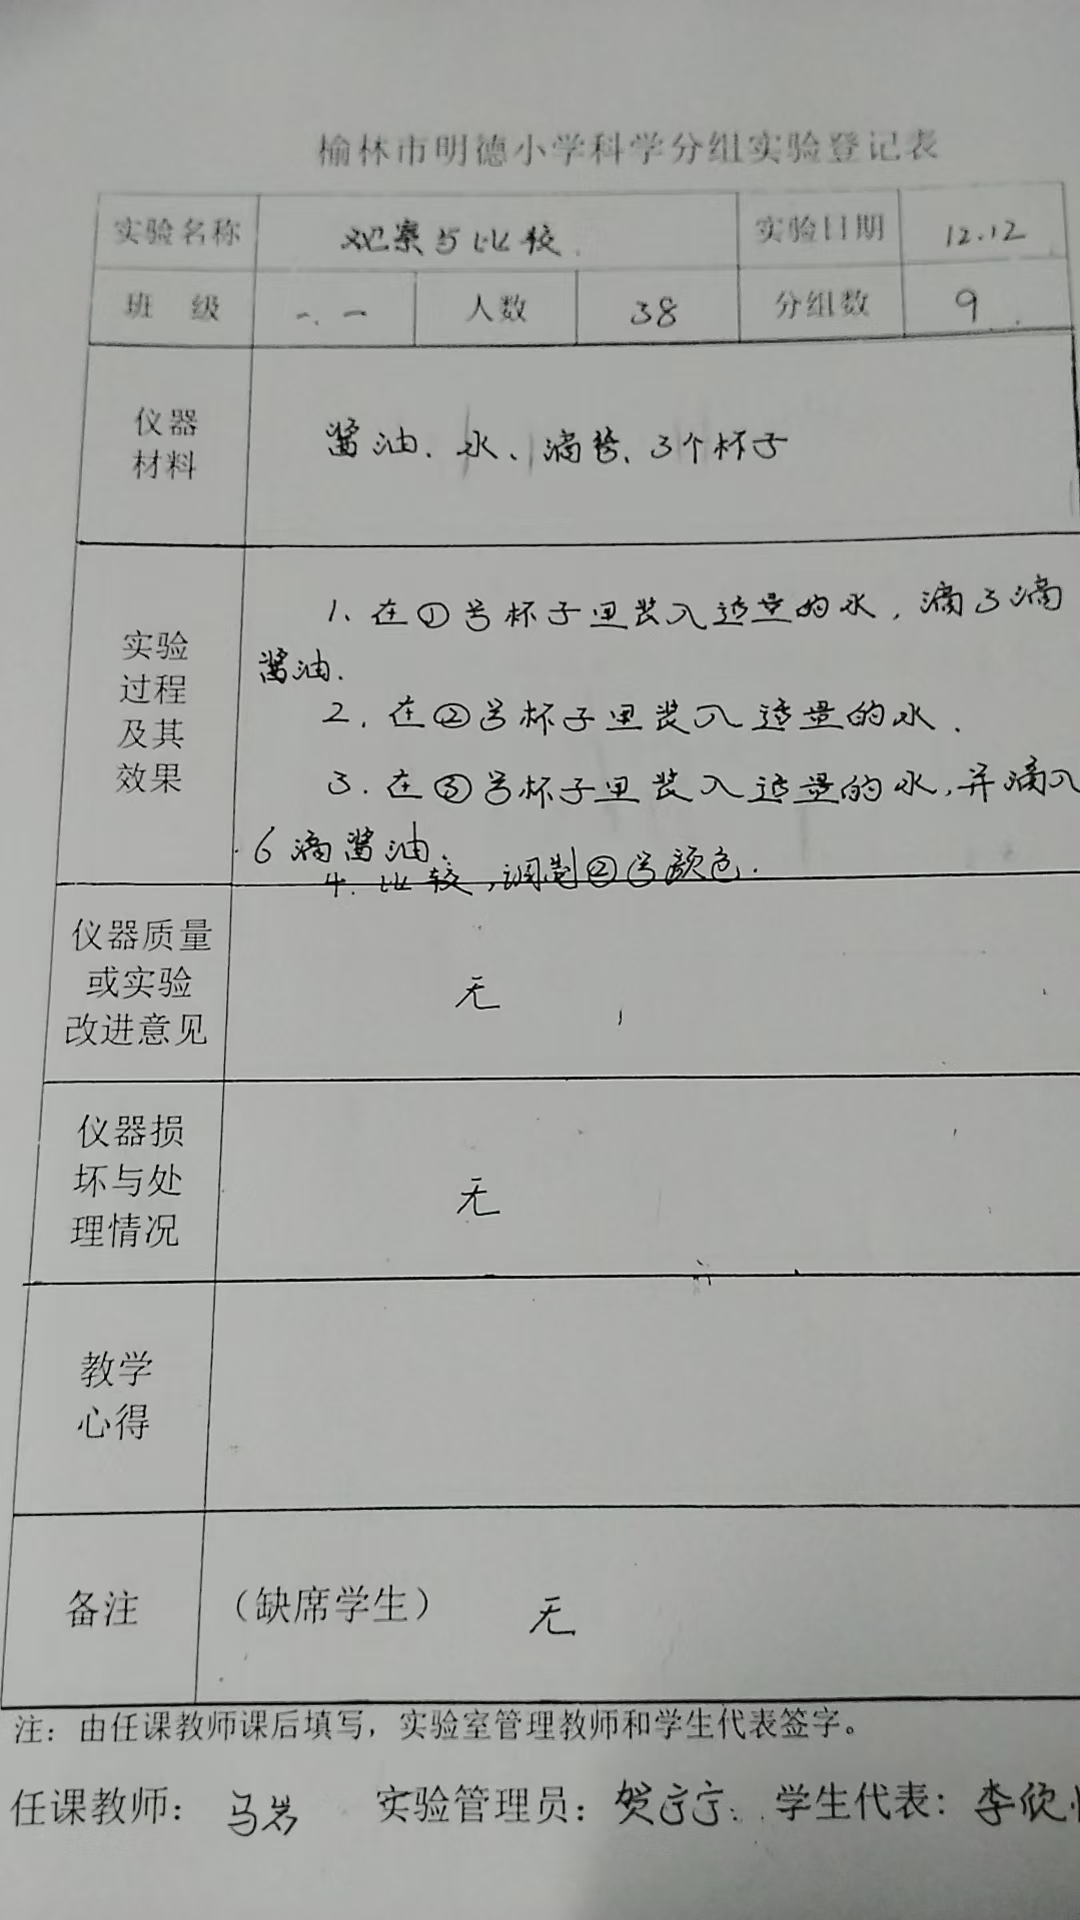 榆林市明德小学科学分组实验登记表
实验名称 观察与比较. 实验日期 12.12
班 级 一.一 人数 38 分组数 9
仪器
材料
酱油、水、滴管、3个杯子
实验
过程
及其
效果
1. 在①号杯子里装入适量的水，滴3滴
酱油.
2. 在②号杯子里装入适量的水.
3. 在③号杯子里装入适量的水,并滴入
6滴酱油.
4. 比较,调制②号颜色.
仪器质量
或实验
改进意见
无
仪器损
坏与处
理情况
无
教学
心得
备注 （缺席学生） 无
注：由任课教师课后填写，实验室管理教师和学生代表签字。
任课教师： 马岩 实验管理员： 贺宁宁 学生代表： 李欣